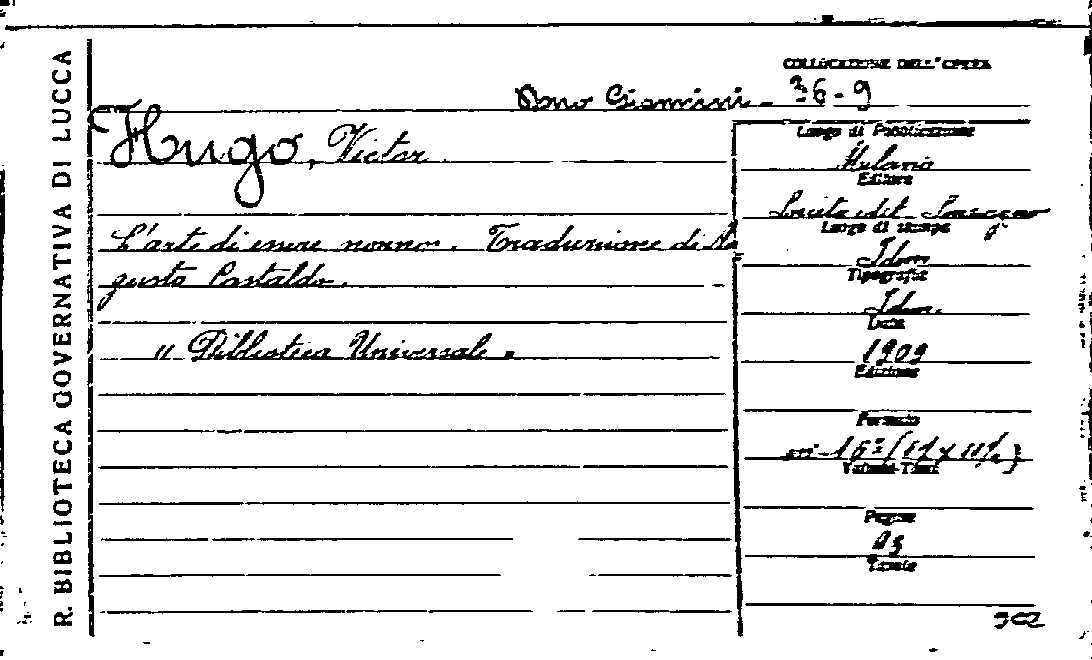 R. BIBLIOTECA GOVERNATIVA DI LUCCA
COLLOCAZIONE DELL'OPERA
Dono Giannini - 36-9
Hugo, Victor
L'arte di essere nonno. Traduzione di Au
gusto Castaldo.
"Biblioteca Universale"
Luogo di Pubblicazione
Milano
Editore
Società edit. Sonzogno
Luogo di stampa
Idem
Tipografia
Idem.
Data
1909
Edizione
Formato
in-16º
Volumi-Tomi
Pagine
93
Tavole
902